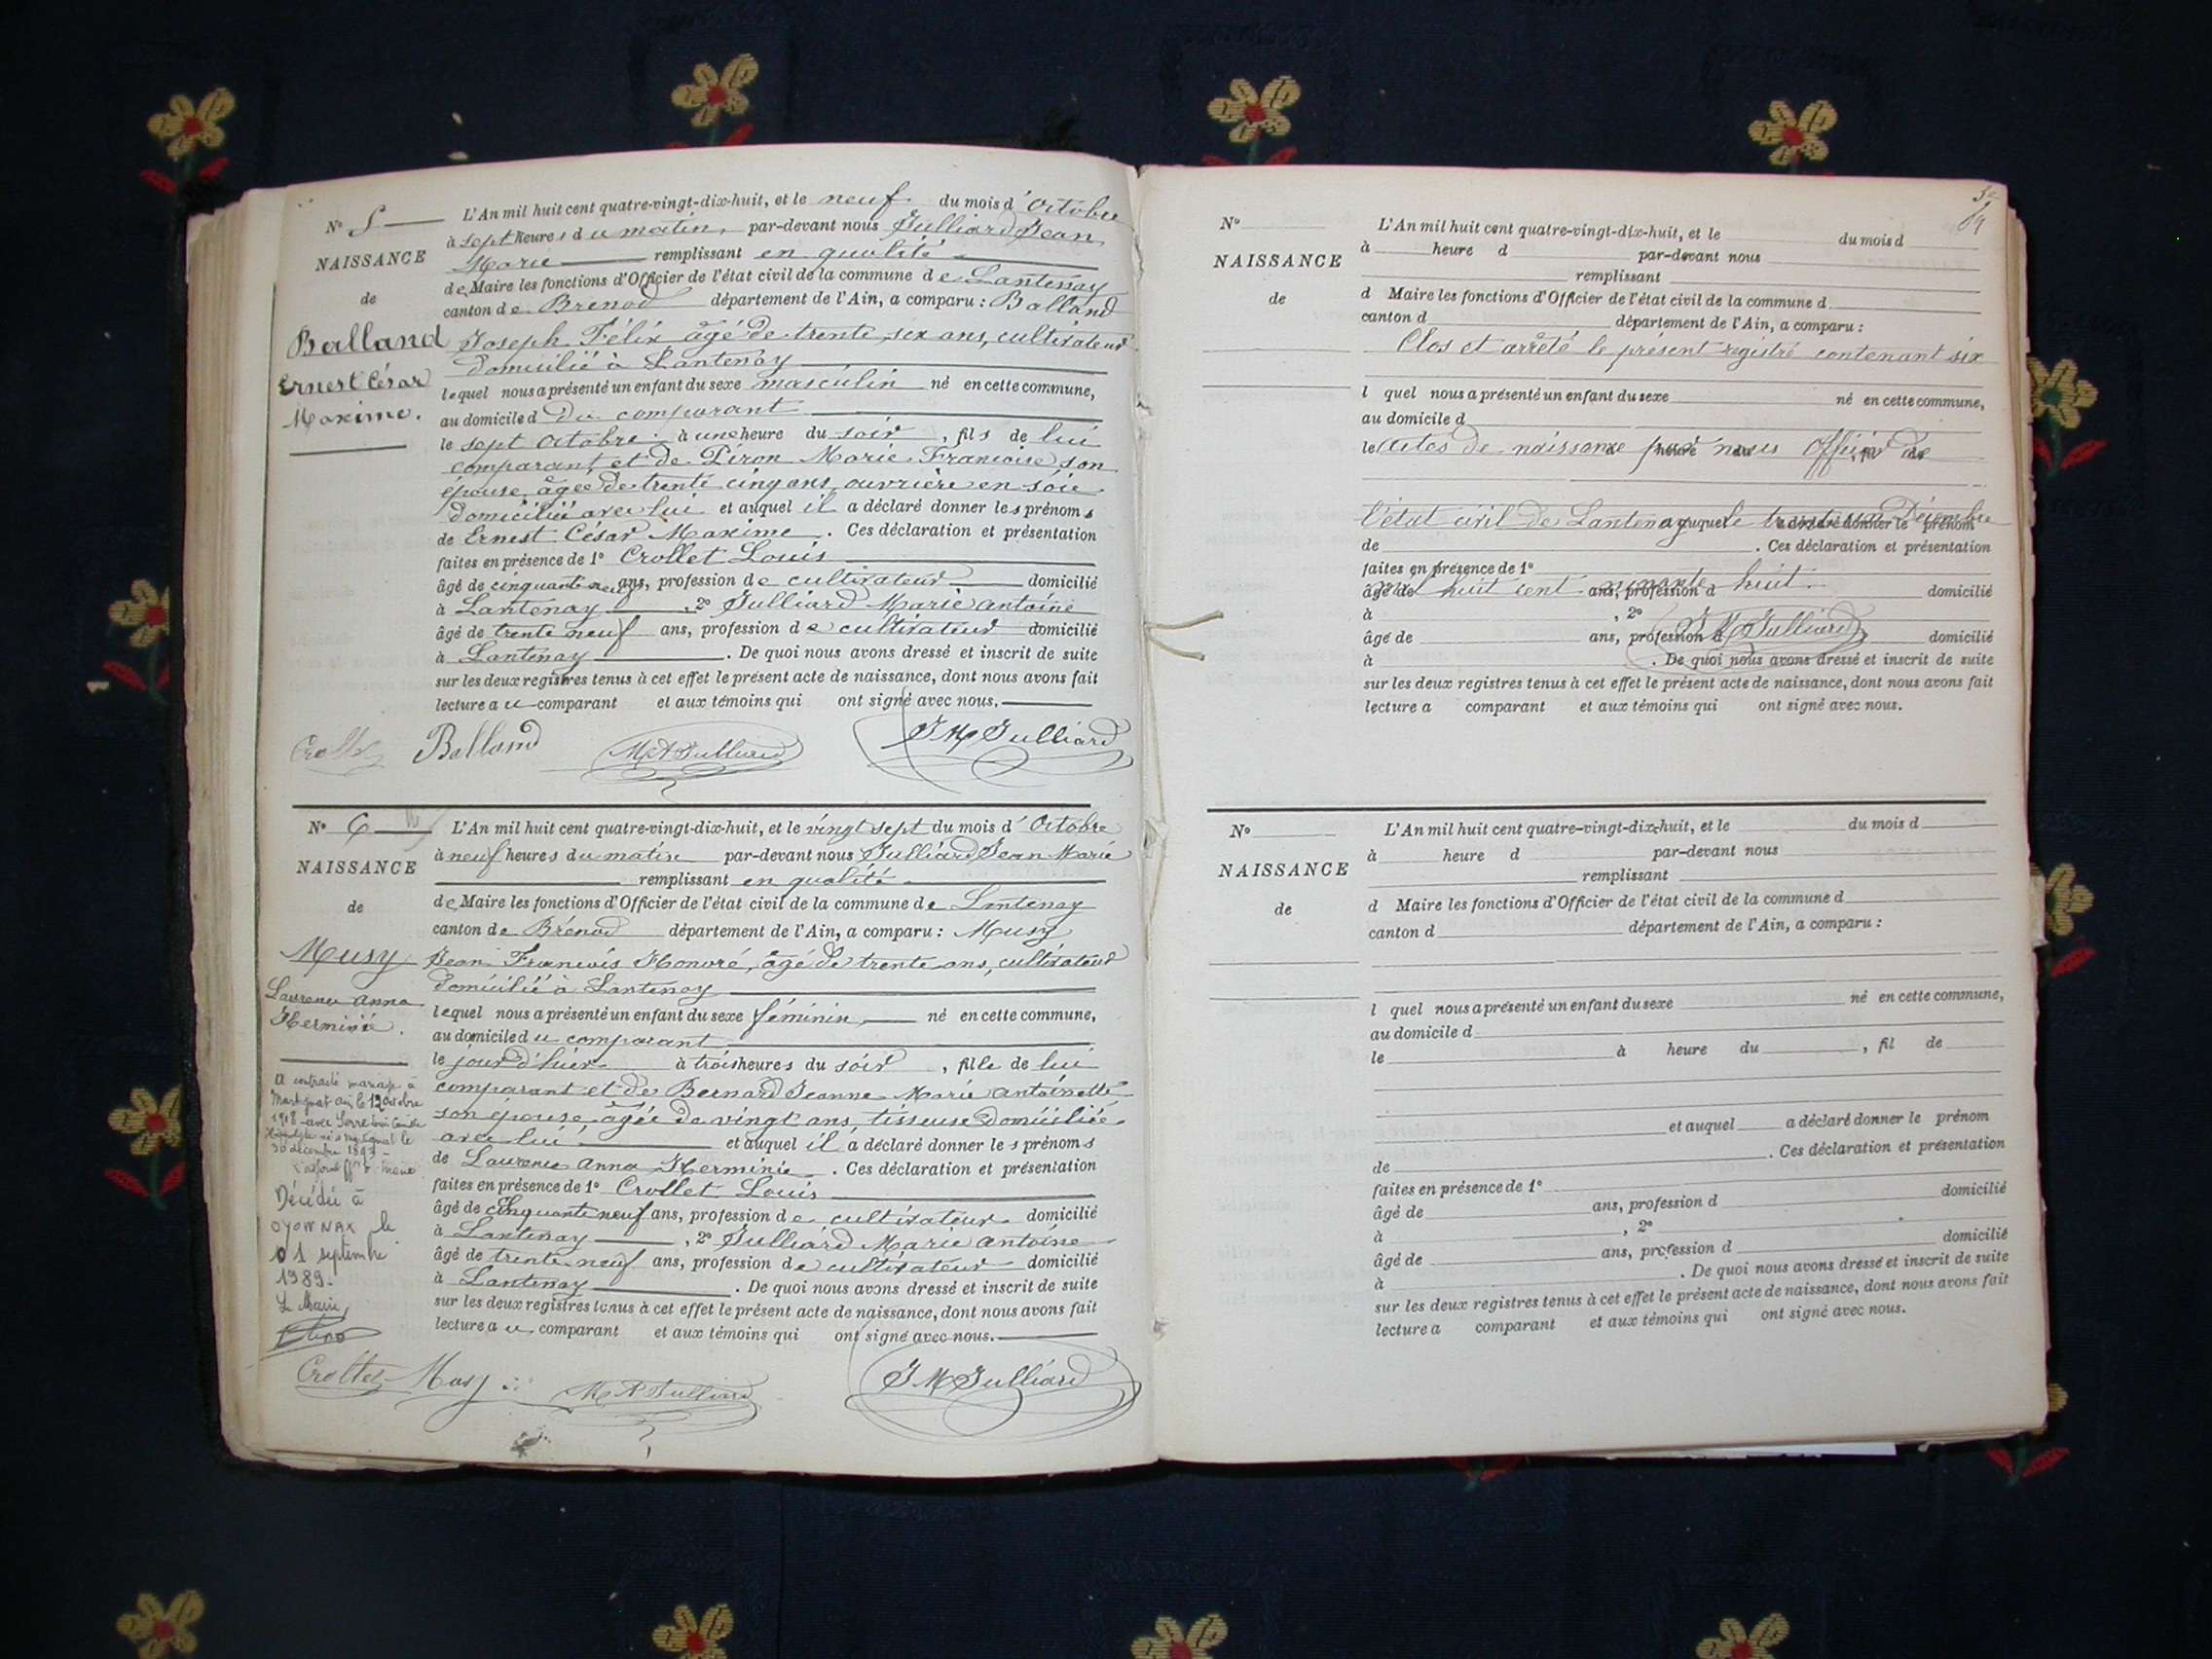 N° 5
NAISSANCE
de
Balland
Ernest César
Maxime.
L'An mil huit cent quatre-vingt-dix-huit, et le neuf du mois d'Octobre
à sept heures du matin, par-devant nous Julliard Jean
Marie remplissant en qualité
de Maire les fonctions d'Officier de l'état civil de la commune de Lantenay
canton de Brénod département de l'Ain, a comparu : Balland
Joseph Félix âgé de trente six ans, cultivateur
domicilié à Lantenay
lequel nous a présenté un enfant du sexe masculin né en cette commune,
au domicile d du comparant
le sept Octobre à une heure du soir, fils de lui
comparant et de Piron Marie Françoise son
épouse âgée de trente cinq ans, ouvrière en soie
domiciliée avec lui et auquel il a déclaré donner les prénoms
de Ernest César Maxime. Ces déclaration et présentation
faites en présence de 1° Crollet Louis
âgé de cinquante neuf ans, profession de cultivateur domicilié
à Lantenay, 2° Julliard Marie Antoine
âgé de trente neuf ans, profession de cultivateur domicilié
à Lantenay. De quoi nous avons dressé et inscrit de suite
sur les deux registres tenus à cet effet le présent acte de naissance, dont nous avons fait
lecture au comparant et aux témoins qui ont signé avec nous.
Crollet Balland MA Julliard JM Julliard
N° 6
NAISSANCE
de
Musy
Laurence Anna
Herminie.
A contracté mariage à
Martignat Ain le 12 Octobre
1918 avec Serre
Hippolyte né à le
30 décembre 1897
Décédée à
OYONNAX le
01 septembre
1989.
Le Maire,
L'An mil huit cent quatre-vingt-dix-huit, et le vingt sept du mois d'Octobre
à neuf heures du matin par-devant nous Julliard Jean Marie
remplissant en qualité
de Maire les fonctions d'Officier de l'état civil de la commune de Lantenay
canton de Brénod département de l'Ain, a comparu : Musy
Jean François Honoré, âgé de trente ans, cultivateur
domicilié à Lantenay
lequel nous a présenté un enfant du sexe féminin né en cette commune,
au domicile du comparant
le jour d'hier à trois heures du soir, fille de lui
comparant et de Bernard Jeanne Marie Antoinette
son épouse âgée de vingt ans, tisseuse domiciliée
avec lui et auquel il a déclaré donner les prénoms
de Laurence Anna Herminie. Ces déclaration et présentation
faites en présence de 1° Crollet Louis
âgé de Cinquante neuf ans, profession de cultivateur domicilié
à Lantenay, 2° Julliard Marie Antoine
âgé de trente neuf ans, profession de cultivateur domicilié
à Lantenay. De quoi nous avons dressé et inscrit de suite
sur les deux registres tenus à cet effet le présent acte de naissance, dont nous avons fait
lecture au comparant et aux témoins qui ont signé avec nous.
Crollet Musy MA Julliard JM Julliard
N°
NAISSANCE
de
L'An mil huit cent quatre-vingt-dix-huit, et le du mois d
à heure d par-devant nous
remplissant
d Maire les fonctions d'Officier de l'état civil de la commune d
canton d département de l'Ain, a comparu :
Clos et arrêté le présent registre contenant six
l quel nous a présenté un enfant du sexe né en cette commune,
au domicile d
le actes de naissance par nous Officier de
l'état civil de Lantenay le trente un Décembre
et auquel a déclaré donner le prénom
de . Ces déclaration et présentation
faites en présence de 1°
mil huit cent nonante huit.
âgé de ans, profession d domicilié
à , 2° JM Julliard
âgé de ans, profession d domicilié
à . De quoi nous avons dressé et inscrit de suite
sur les deux registres tenus à cet effet le présent acte de naissance, dont nous avons fait
lecture a comparant et aux témoins qui ont signé avec nous.
N°
NAISSANCE
de
L'An mil huit cent quatre-vingt-dix-huit, et le du mois d
à heure d par-devant nous
remplissant
d Maire les fonctions d'Officier de l'état civil de la commune d
canton d département de l'Ain, a comparu :
l quel nous a présenté un enfant du sexe né en cette commune,
au domicile d
le à heure du , fil de
et auquel a déclaré donner le prénom
de . Ces déclaration et présentation
faites en présence de 1°
âgé de ans, profession d domicilié
à , 2°
âgé de ans, profession d domicilié
à . De quoi nous avons dressé et inscrit de suite
sur les deux registres tenus à cet effet le présent acte de naissance, dont nous avons fait
lecture a comparant et aux témoins qui ont signé avec nous.